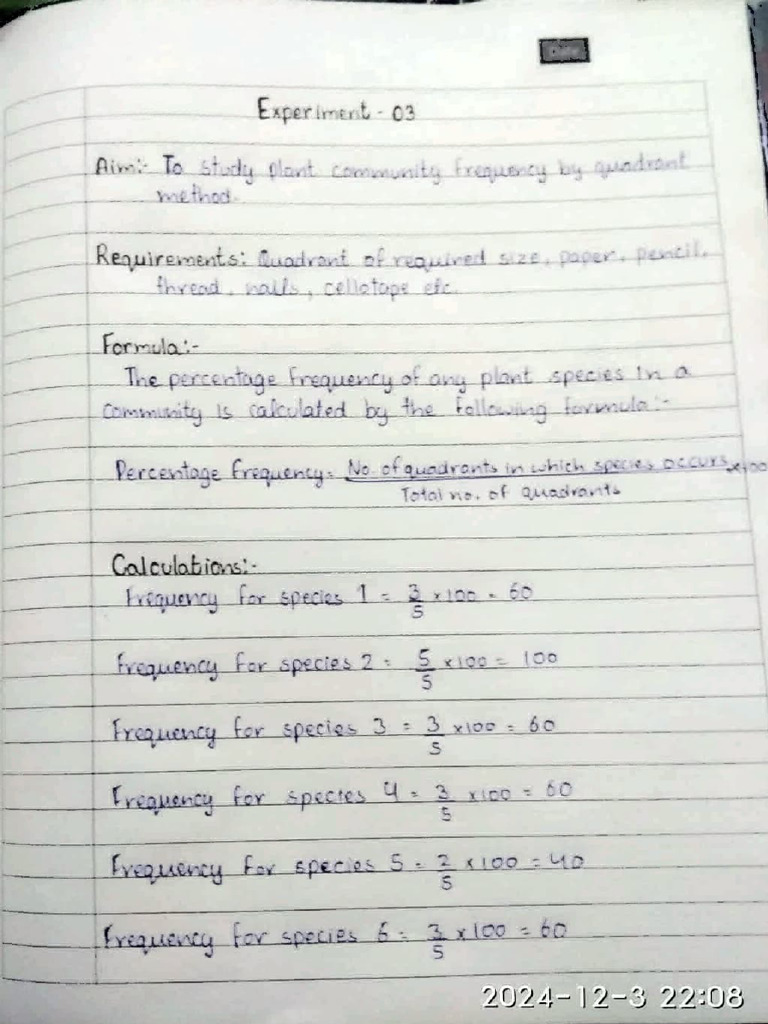 Date
Experiment - 03
Aim:- To study plant community frequency by quadrant
method.
Requirements: Quadrant of required size, paper, pencil,
thread, nails, cellotape etc.
Formula:-
The percentage frequency of any plant species in a
community is calculated by the following formula:-
Percentage frequency = No. of quadrants in which species occurs ×100
Total no. of quadrants
Calculations:-
Frequency for species 1 = 3/5 × 100 = 60
Frequency for species 2 = 5/5 × 100 = 100
Frequency for species 3 = 3/5 × 100 = 60
Frequency for species 4 = 3/5 × 100 = 60
Frequency for species 5 = 2/5 × 100 = 40
Frequency for species 6 = 3/5 × 100 = 60
2024-12-3 22:08